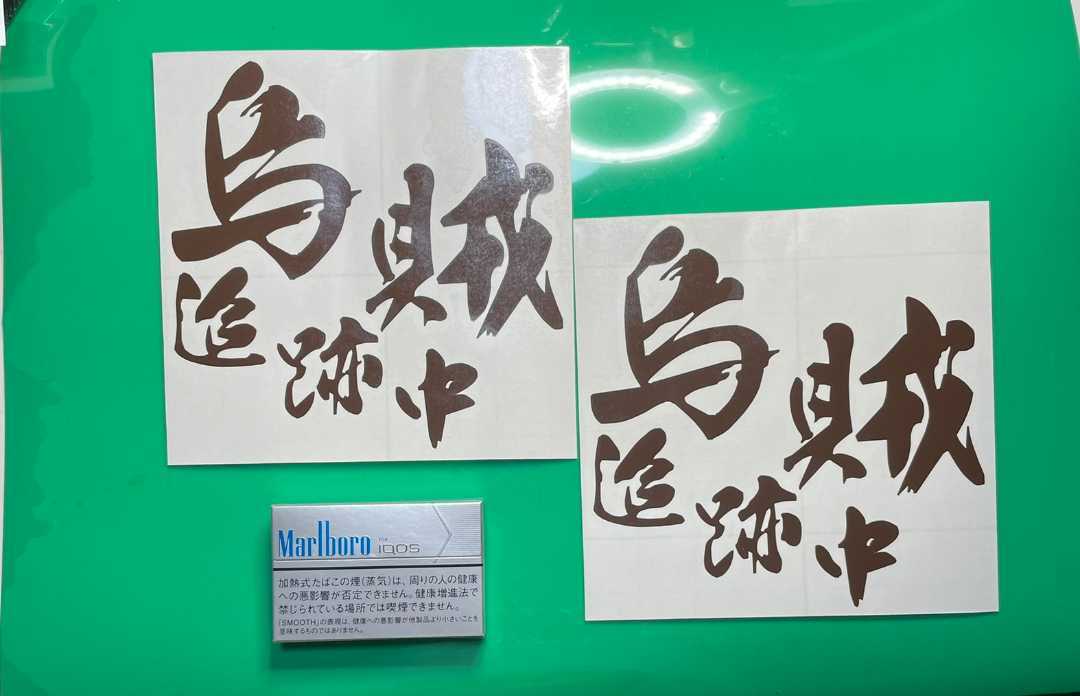 烏賊
追跡中
烏賊
追跡中
Marlboro
for IQOS
加熱式たばこの煙(蒸気)は、周りの人の健康
への悪影響が否定できません。健康増進法で
禁じられている場所では喫煙できません。
「SMOOTH」の表現は、健康への悪影響が他製品より小さいことを
意味するものではありません。